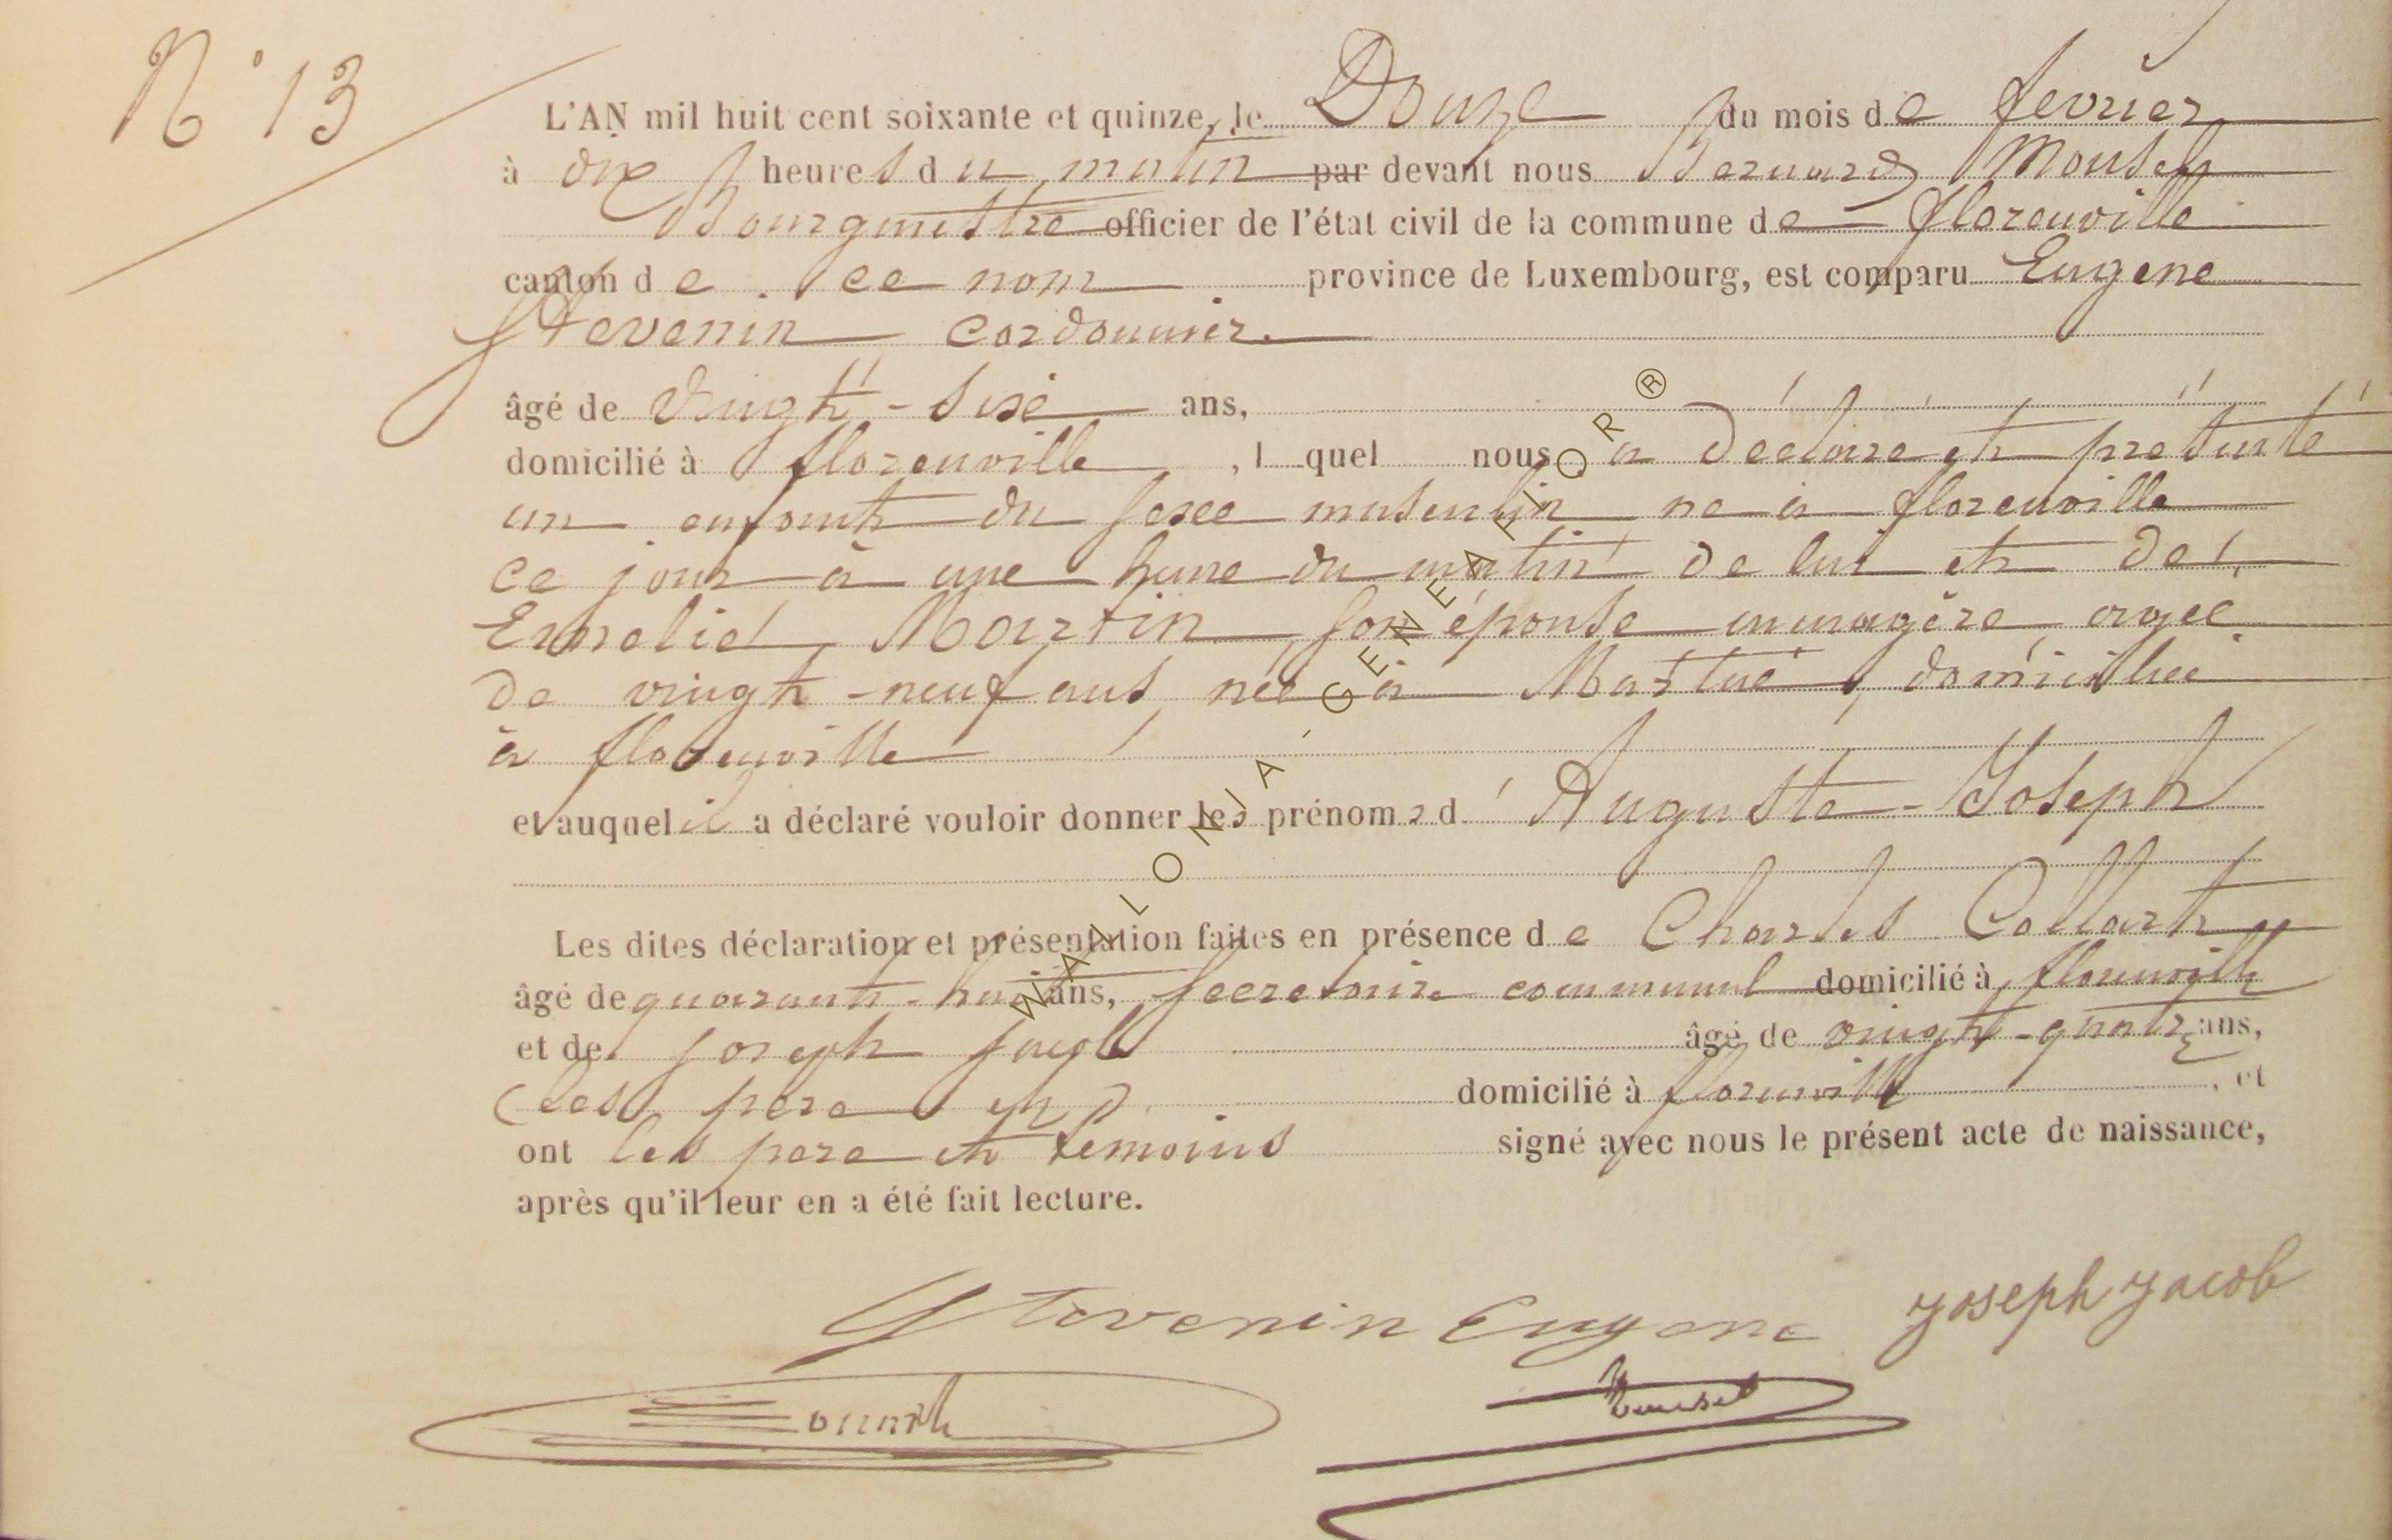 N° 13
L'AN mil huit cent soixante et quinze, le Douze du mois de fevrier
à dix heures du matin par devant nous Bernard Mousel
Bourgmestre officier de l'état civil de la commune de florenville
canton de ce nom province de Luxembourg, est comparu Eugene
Stevenin cordonnier
âgé de vingt-six ans,
domicilié à florenville, l quel nous a déclaré et présenté
un enfant du sexe masculin né à florenville
ce jour à une heure du matin de lui et de
Emelie Martin son épouse ménagère agée
de vingt-neuf ans née à Martué, domiciliée
à florenville
et auquel il a déclaré vouloir donner les prénoms d' Auguste-Joseph
Les dites déclaration et présentation faites en présence de Charles Collart
âgé de quarante-huit ans, secretaire communal domicilié à florenville
et de joseph jacob âgé de vingt-quatre ans,
(les père et) domicilié à florenville, et
ont les père et témoins signé avec nous le présent acte de naissance,
après qu'il leur en a été fait lecture.
Stevenin Eugene Joseph Jacob
Mousel
WALLONIA - GENEAFLOR ®